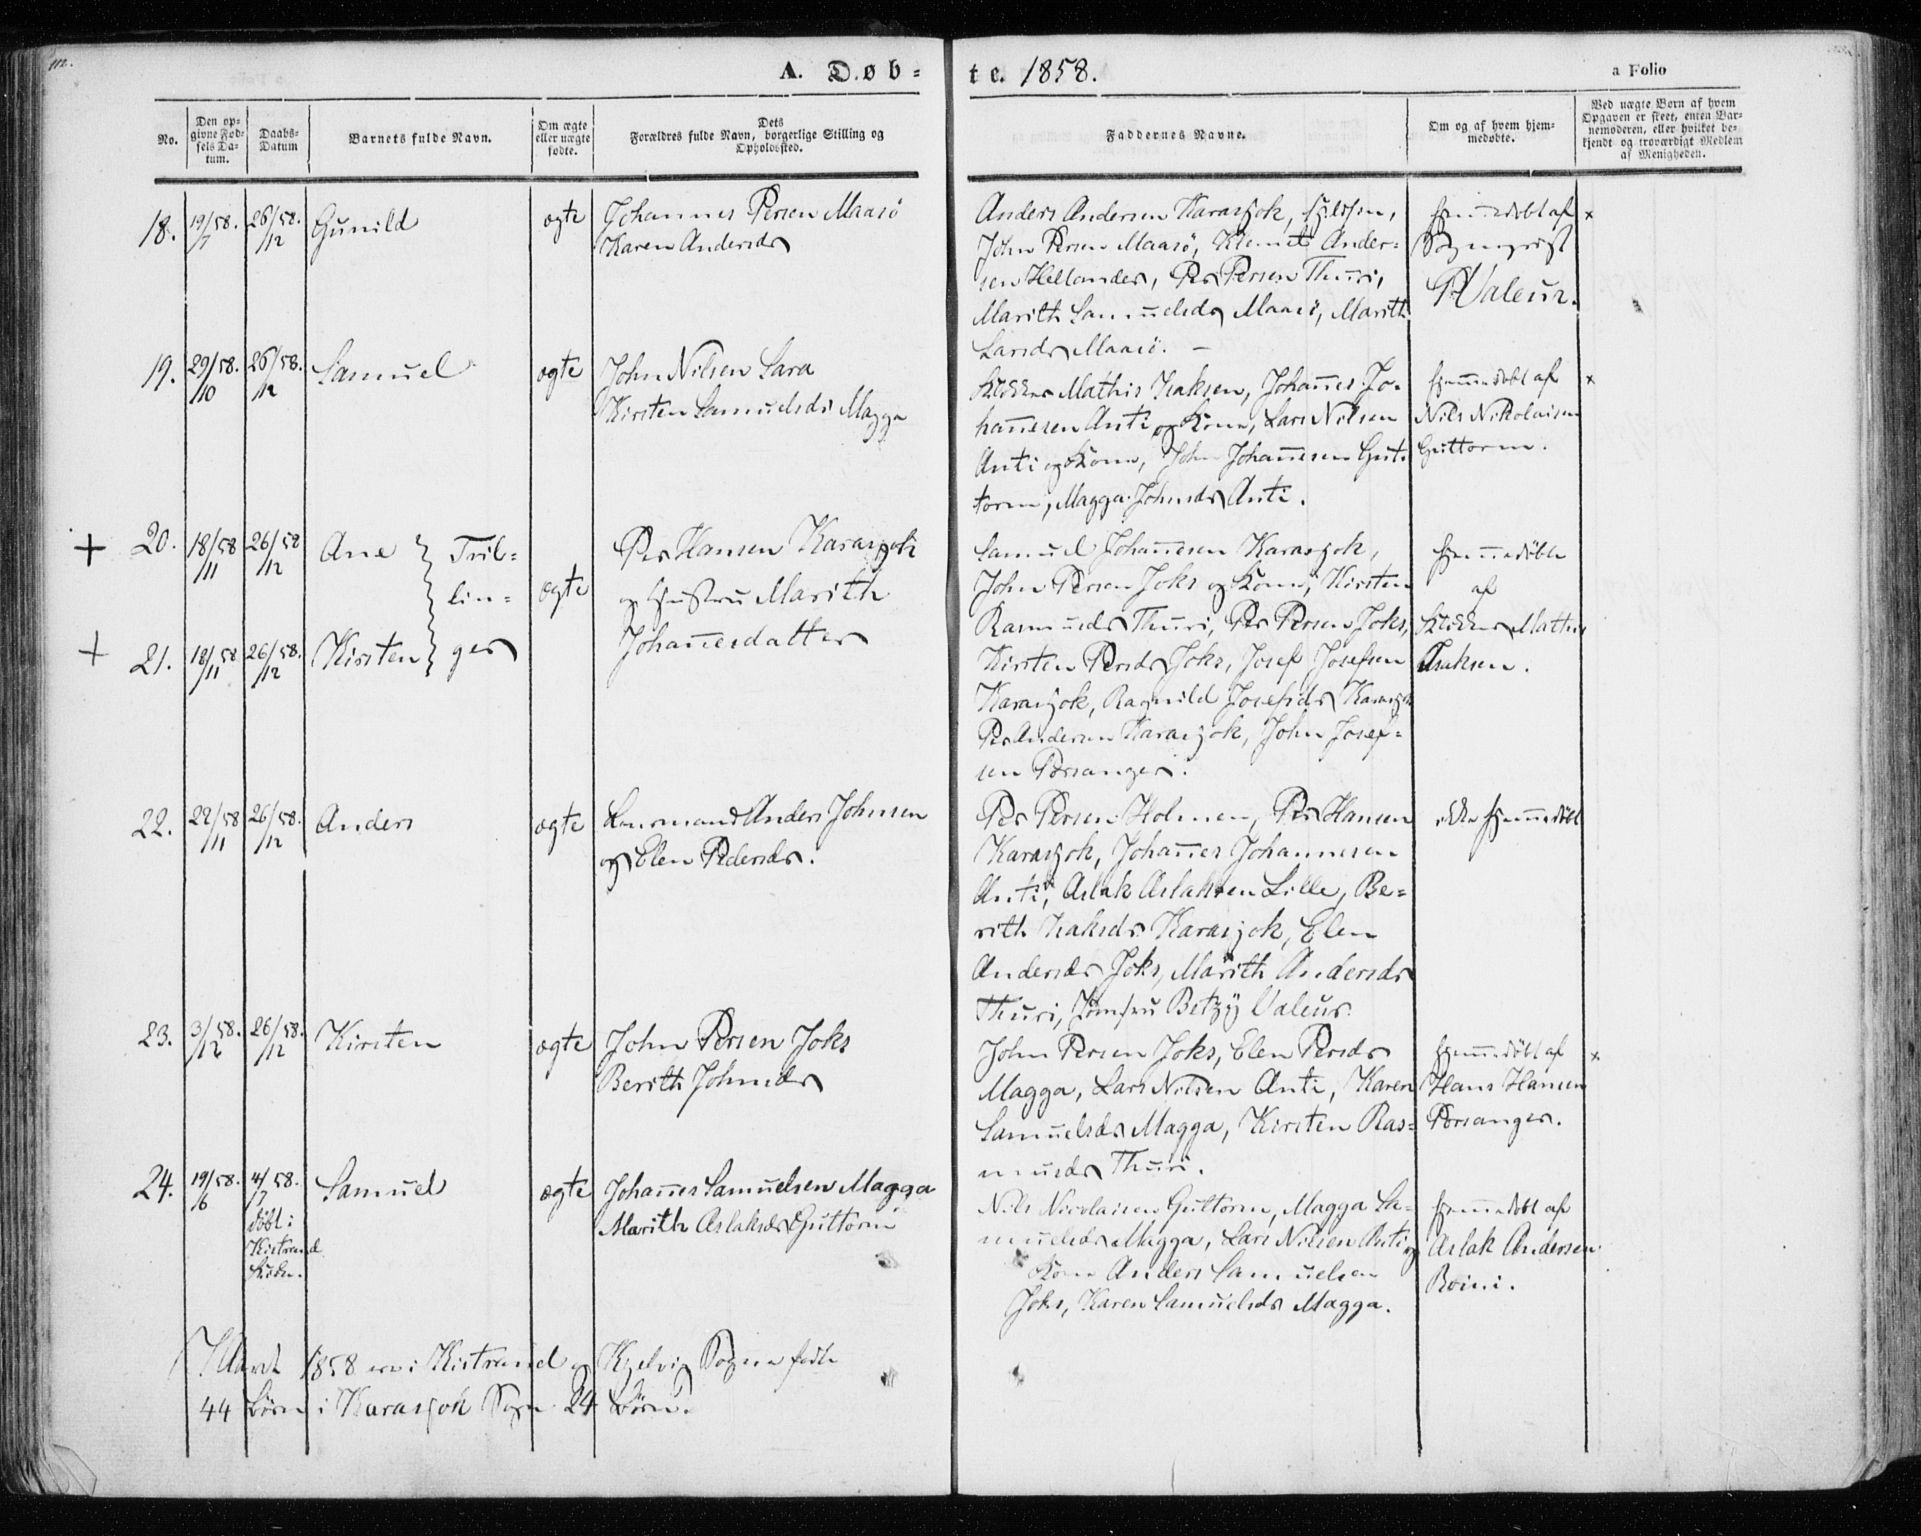 112.
A. Døb-
te. 1858.
a Folio
No.
Den op-
givne Fød-
sels Da-
tum.
Daabs-
Datum
Barnets fulde Navn.
Om ægte
eller uægte
fødte.
Dets
Forældres fulde Navn, borgerlige Stilling og
Opholdssted.
Faddernes Navne.
Om og af hvem hjem-
medøbte.
Ved uægte Born af hvem
Opgaven er skeet, enten Bar-
nemoderen, eller hvilket be-
kjendt og troværdigt Medlem
af Menigheden.
18. 19/7 58. 26/12 58. Gunild ægte
Johannes Persen Maasø
Karen Andersdr
Anders Andersen Karasjok,
John Persen Maasø, Klemet Ander-
sen Hellander, Per Persen Thuri,
Marith Samuelsdr Maasø, Marith
Larsdr Maasø. -
hjemmedøbt af
Sogneprest
PValeur.
×
19. 29/10 58. 26/12 58. Samuel ægte
John Nilsen Sara
Kirsten Samuelsdr Magga
Klokker Mathis Isaksen, Johannes Jo-
hannesen Anti og Kone, Lars Nilsen
Anti og Kone, John Johannesen Gut-
torm, Magga Johnsdr Anti.
hjemmedøbt af
Nils Nikolaisen
Guttorm.
×
+ 20. 18/11 58 26/12 58 Ane } Tvil-
lin-
ger
ægte
+ 21. 18/11 58 26/12 58. Kirsten }
Per Hansen Karasjok
og Hustru Marith
Johannesdatter
Samuel Johannesen Karasjok,
John Persen Joks og Kone, Kirsten
Rasmusdr Thuri, Per Persen Joks,
Kirsten Persdr Joks, Josef Josefsen
Karasjok, Ragnild Josefsdr Karasjok
Per Andersen Karasjok, John Josef-
sen Porsanger.
hjemmedøbte
af
Klokker Mathis
Isaksen.
22. 22/11 58 26/12 58. Anders ægte
Lensmand Anders Johnsen
og Elen Pedersdr.
Per Persen Holmen, Per Hansen
Karasjok, Johannes Johannesen
Anti, Aslak Aslaksen Lille, Be-
rith Isaksdr Karasjok, Elen
Andersdr Joks, Marith Andersdr
Thuri, Jomfru Betzy Valeur.
ikke hjemmedøbt
23. 3/12 58. 26/12 58. Kirsten ægte
John Persen Joks
Berith Johnsdr
John Persen Joks, Elen Persdr
Magga, Lars Nilsen Anti, Karen
Samuelsdr Magga, Kirsten Ras-
musdr Thuri.
hjemmedøbt af
Hans Hansen
Porsanger.
×
24. 19/6 58. 4/7 58. Samuel ægte
døbt i
Kistrand
Kirke.
Johannes Samuelsen Magga
Marith Aslaksdr Guttorm
Nils Nicolaisen Guttorm, Magga Sa-
muelsdr Magga, Lars Nilsen Anti og
Kone Anders Samuelsen
Joks, Karen Samuelsdr Magga.
hjemmedøbt af
Aslak Andersen
Boini.
I Aaret 1858 ere i Kistrand og Kjelvig Sogne fødte
44 Børn i Karasjok Sogn 24 Børn.